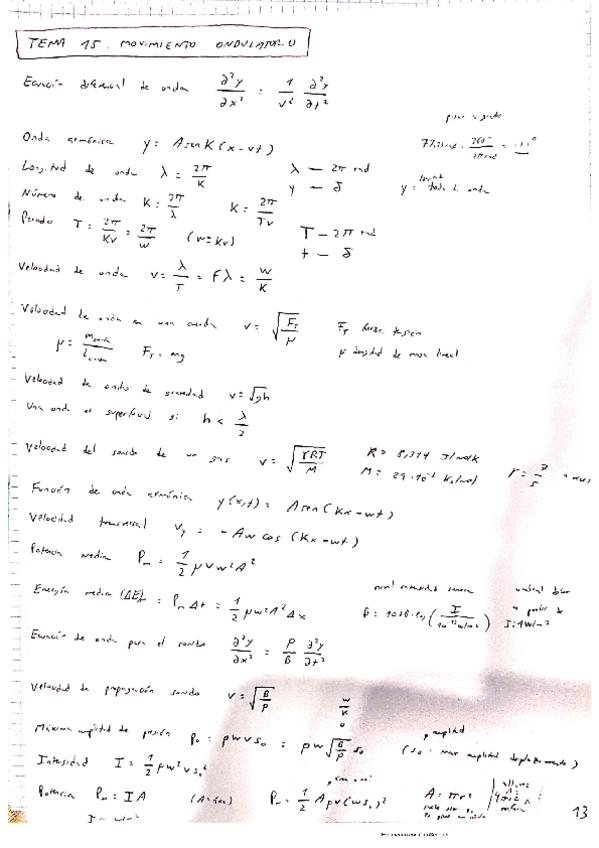 TEMA 15. MOVIMIENTO ONDULATORIO
Ecuación diferencial de onda ∂²y/∂x² = 1/v² ∂²y/∂t²
Onda armónica y = A sen K (x - vt)
Longitud de onda λ = 2π/K λ — 2π rad
y — δ
Número de onda K = 2π/λ K = 2π/Tv
Periodo T = 2π/Kv = 2π/w (w = Kv) T — 2π rad
t — δ
Velocidad de onda v = λ/T = Fλ = w/K
Velocidad de onda en una cuerda v = √(F_T/μ) F_T fuerza tensión
μ = m cuerda/L cuerda F_T = mg μ densidad de masa lineal
Velocidad de ondas de gravedad v = √gh
Una onda es superficial si: h < λ/2
Velocidad del sonido de un gas v = √(γRT/M) R = 8,314 J/molK
M = 29·10⁻³ Kg/mol γ = 7/5
Función de onda armónica y(x,t) = A sen (Kx - wt)
Velocidad transversal v_y = -Aw cos (Kx - wt)
Potencia media P_m = 1/2 μvw²A²
Energía media (ΔE)m = P_m Δt = 1/2 μw²A²Δx
nivel intensidad sonora
umbral dolor
a partir de
I = 1 W/m²
Ecuación de onda para el sonido ∂²y/∂x² = ρ/B ∂²y/∂t²
Velocidad de propagación sonido v = √(B/ρ)
w/K
Máxima amplitud de presión P₀ = ρwvs₀ = ρw√(B/ρ) s₀ (s₀ = max amplitud desplazamiento)
Intensidad I = 1/2 ρw²vs₀²
Potencia P_m = IA (A = área) P_m = 1/2 Aρv(ws₀)² A = πr²
13